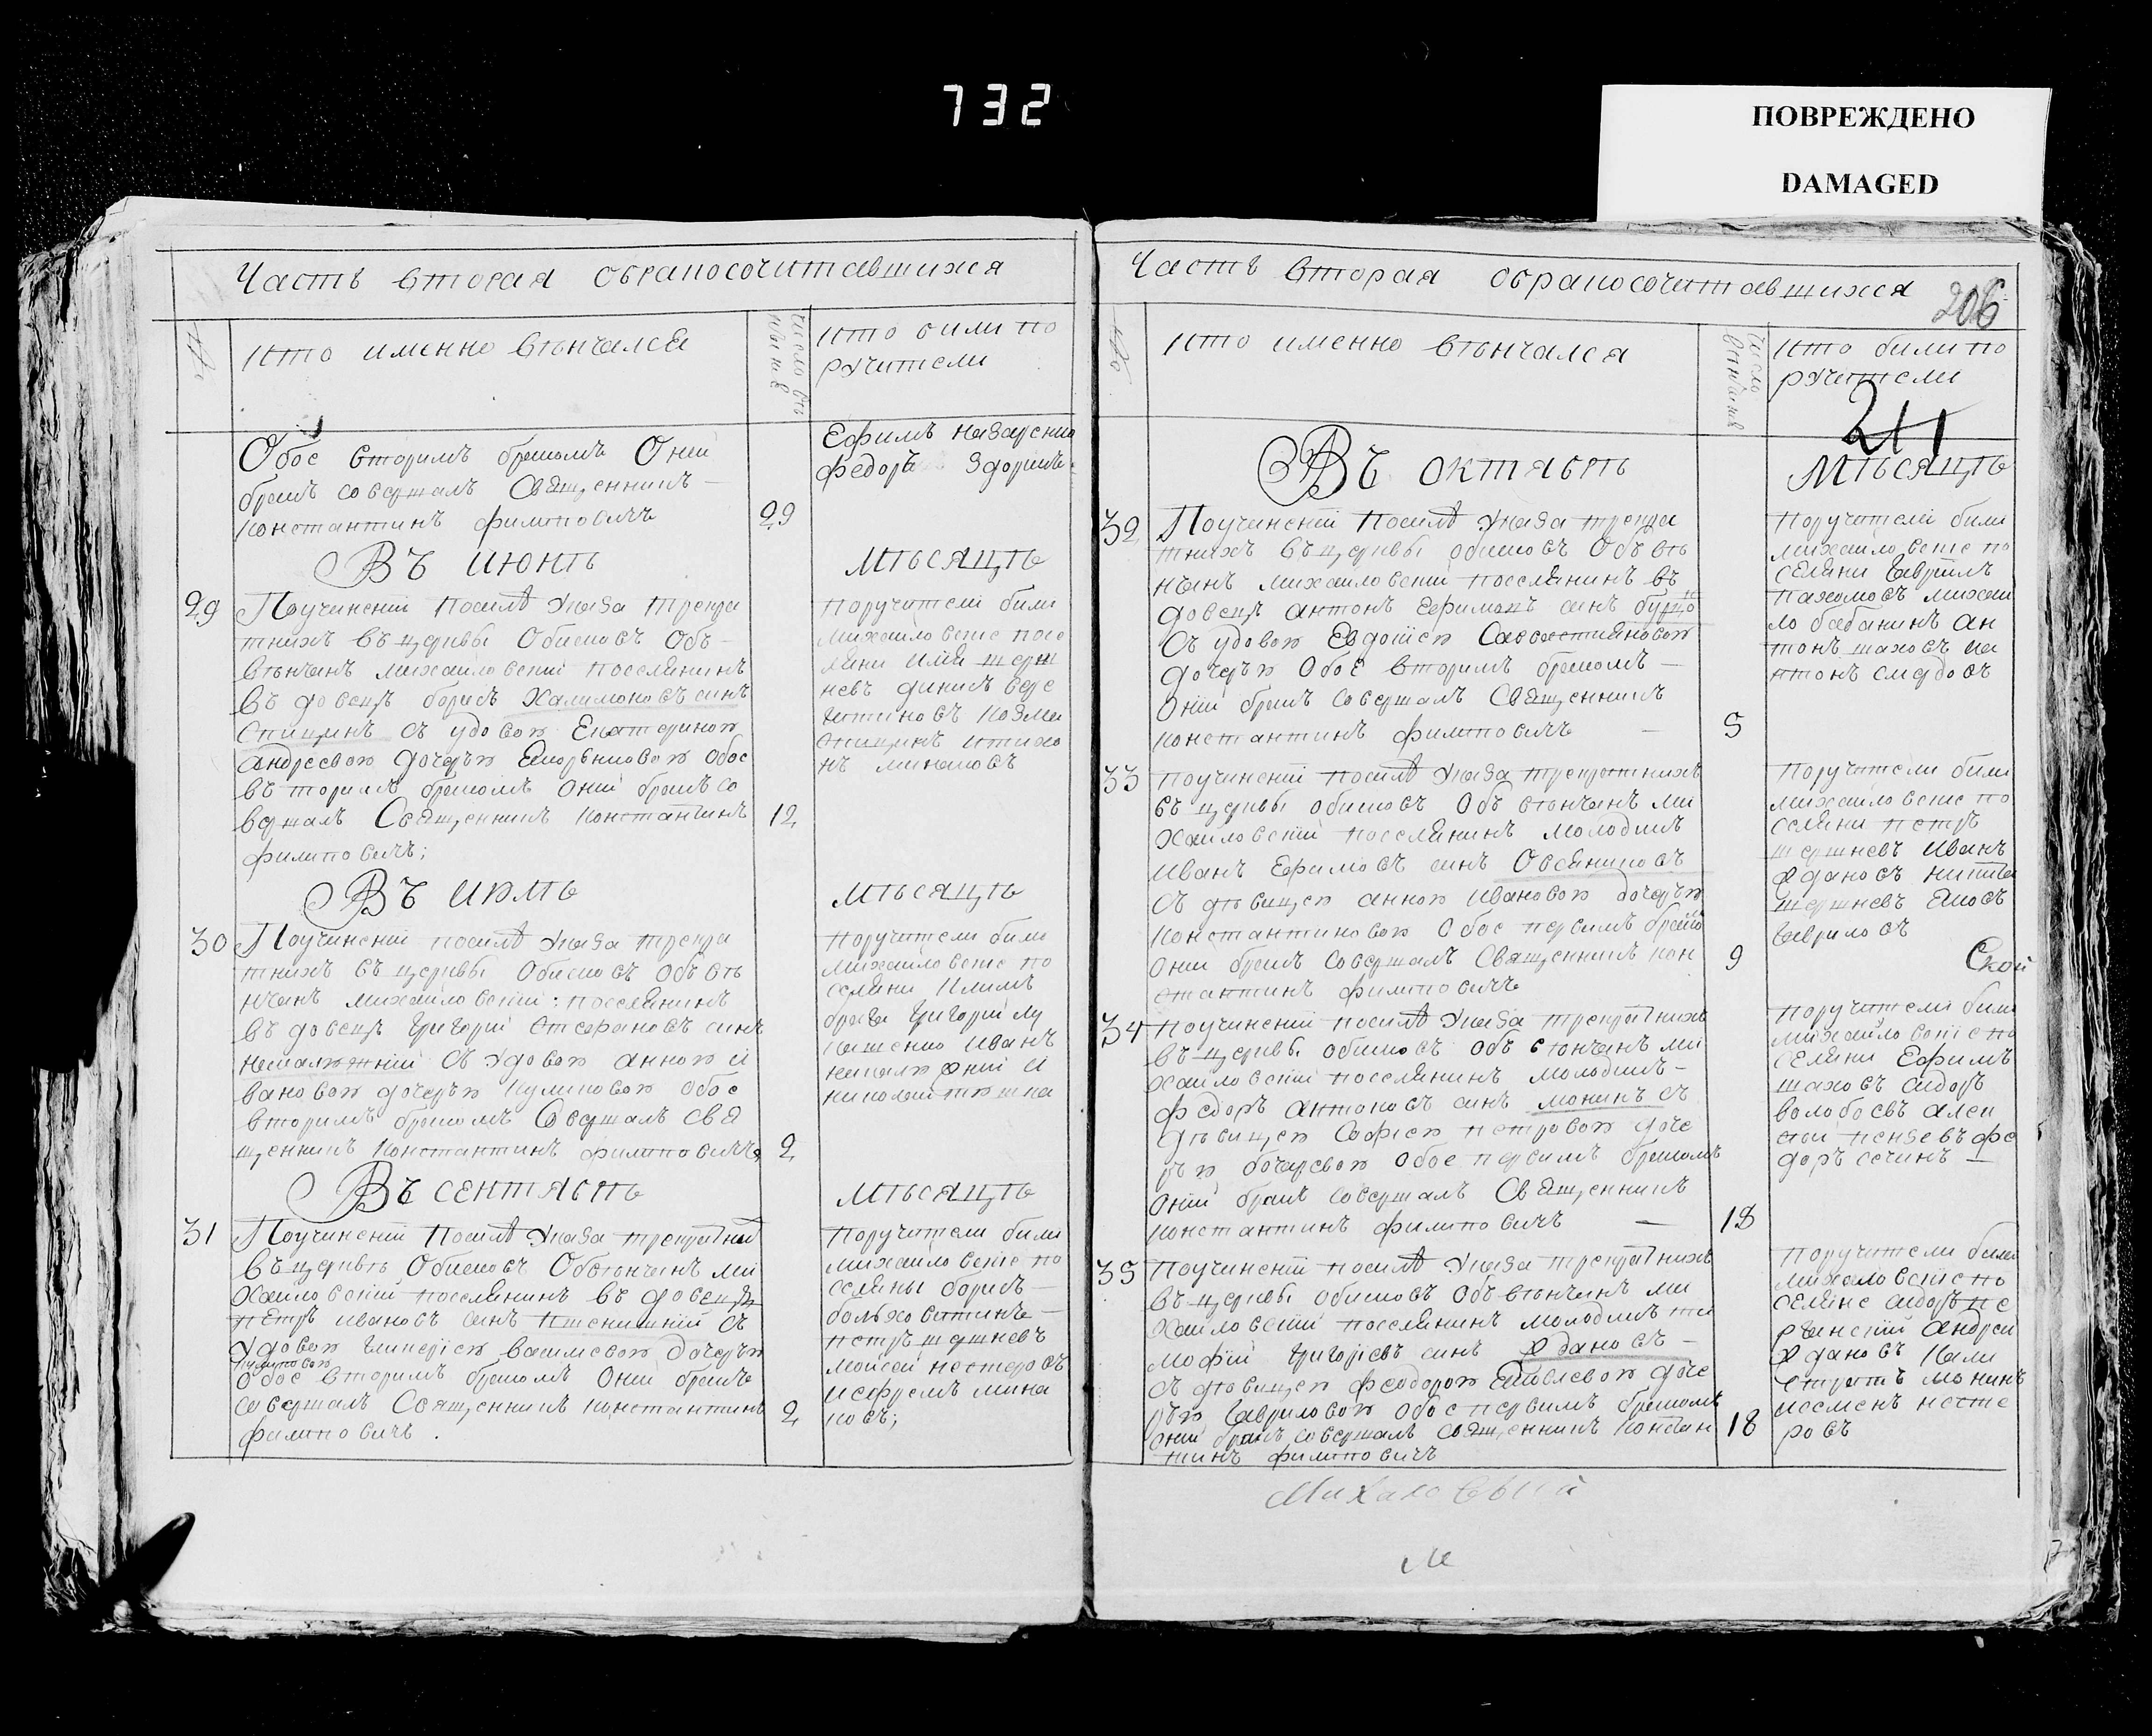 732
ПОВРЕЖДЕНО
DAMAGED
Часть вторая обракосочитавшихся
№
кто именно вѣнчался
число вѣнчыния
кто били по
ручители
Обое вторимъ бракомъ Оний
бракъ совершалъ Священникъ
Константинъ филиповичъ
29
Ефимъ Назаренко
федоръ
Въ июнѣ
мѣсяцѣ
29
Поучинений посилѣ Указа трекра
тнихъ въ церквы обисковъ Объ
вѣнчанъ михаиловский поселянинъ
въ довецъ борисъ Халимоновъ синъ
Спицинъ съ удовою Екатериною
Андреевою дочерью обое
въ торимъ бракомъ оний бракъ со
вершалъ Священникъ Константинъ
филиповичъ;
12
поручители били
михаиловские посе
ляни илия шерш
невъ
козма
спицинъ и тихо
нъ минаковъ
Въ июлѣ
мѣсяцѣ
30
Поучинений посилѣ Указа трекра
тнихъ въ церквы обисковъ объ вѣ
нчанъ михаиловский: поселянинъ
въ довецъ григорий стефановъ синъ
съ удовою анною и
вановою дочерью куликовою обое
вторимъ бракомъ совершалъ свя
щенникъ Константинъ филиповичъ
2
поручители били
михаиловские по
селяни климъ
брага григорий лу
кашенко иванъ
и
николай
Въ сентябрѣ
мѣсяцѣ
31
Поучинений посилѣ Указа трекратних
въ церквѣ обисковъ Обвѣнчанъ ми
хаиловский поселянинъ въ довецъ
петръ ивановъ синъ пшенишний съ
удовою гликериею василевою дочерью
куликовою
обое вторимъ бракомъ оний бракъ
совершалъ Священникъ Константинъ
филиповичъ.
2
поручители били
михаиловские по
селяны борисъ
болховитинъ
петръ шершневъ
мойсей нестеровъ
и ефремъ мина
ковъ;
Часть вторая обракосочитавшихся
206
№
кто именно вѣнчался
число вѣнчания
кто били по
ручители
211
Въ октябрѣ
мѣсяцѣ
32
Поучинений посилѣ Указа трекра
тнихъ въ церквы обисковъ Объ вѣ
нчанъ михаиловский поселянинъ въ
довецъ антонъ Ефимовъ синъ
съ удовою Евдокиею Савастияновою
дочерью обое вторимъ бракомъ
оний бракъ совершалъ Священникъ
Константинъ филиповичъ
5
поручители били
михаиловские по
селяни гаврилъ
пахомовъ михаи
ло бабанинъ ан
тонъ шаховъ и а
нтонъ
33
поучинений посилѣ Указа трекратнихъ
въ церквы обисковъ Объ вѣнчанъ ми
хаиловский поселянинъ молодикъ
иванъ Ефимовъ синъ Овсянниковъ
съ дѣвицею анною ивановою дочерью
Константиновою обое первимъ бракомъ
оний бракъ совершалъ Священникъ кон
стантинъ филиповичъ
9
поручители били
михаиловские по
селяни петръ
шершневъ иванъ
ждановъ никита
шершневъ яковъ
гавриловъ
Ской
34
поучинений посилѣ Указа трекратнихъ
въ церквы обисковъ объ вѣнчанъ ми
хаиловский поселянинъ молодикъ
федоръ антоновъ синъ монинъ съ
дѣвицею Софиею петровою доче
рью бочаровою обое первимъ бракомъ
оний бракъ совершалъ Священникъ
константинъ филиповичъ
18
поручители били
михаиловские по
селяни Ефимъ
шаховъ сидоръ
волобоевъ алек
сей пензевъ фе
доръ сечинъ
35
поучинений посилѣ Указа трекратнихъ
въ церквы обисковъ Объ вѣнчанъ ми
хаиловский поселянинъ молодикъ ти
мофий григориевъ синъ ждановъ
съ дѣвицею феодорою Яковлевою доче
рью гавриловою обое первимъ бракомъ
оний бракъ совершалъ священникъ констан
тинъ филиповичъ
18
поручители били
михаиловские по
селяне сидоръ пе
рчинский андрей
ждановъ кали
стратъ монинъ
несте
ровъ